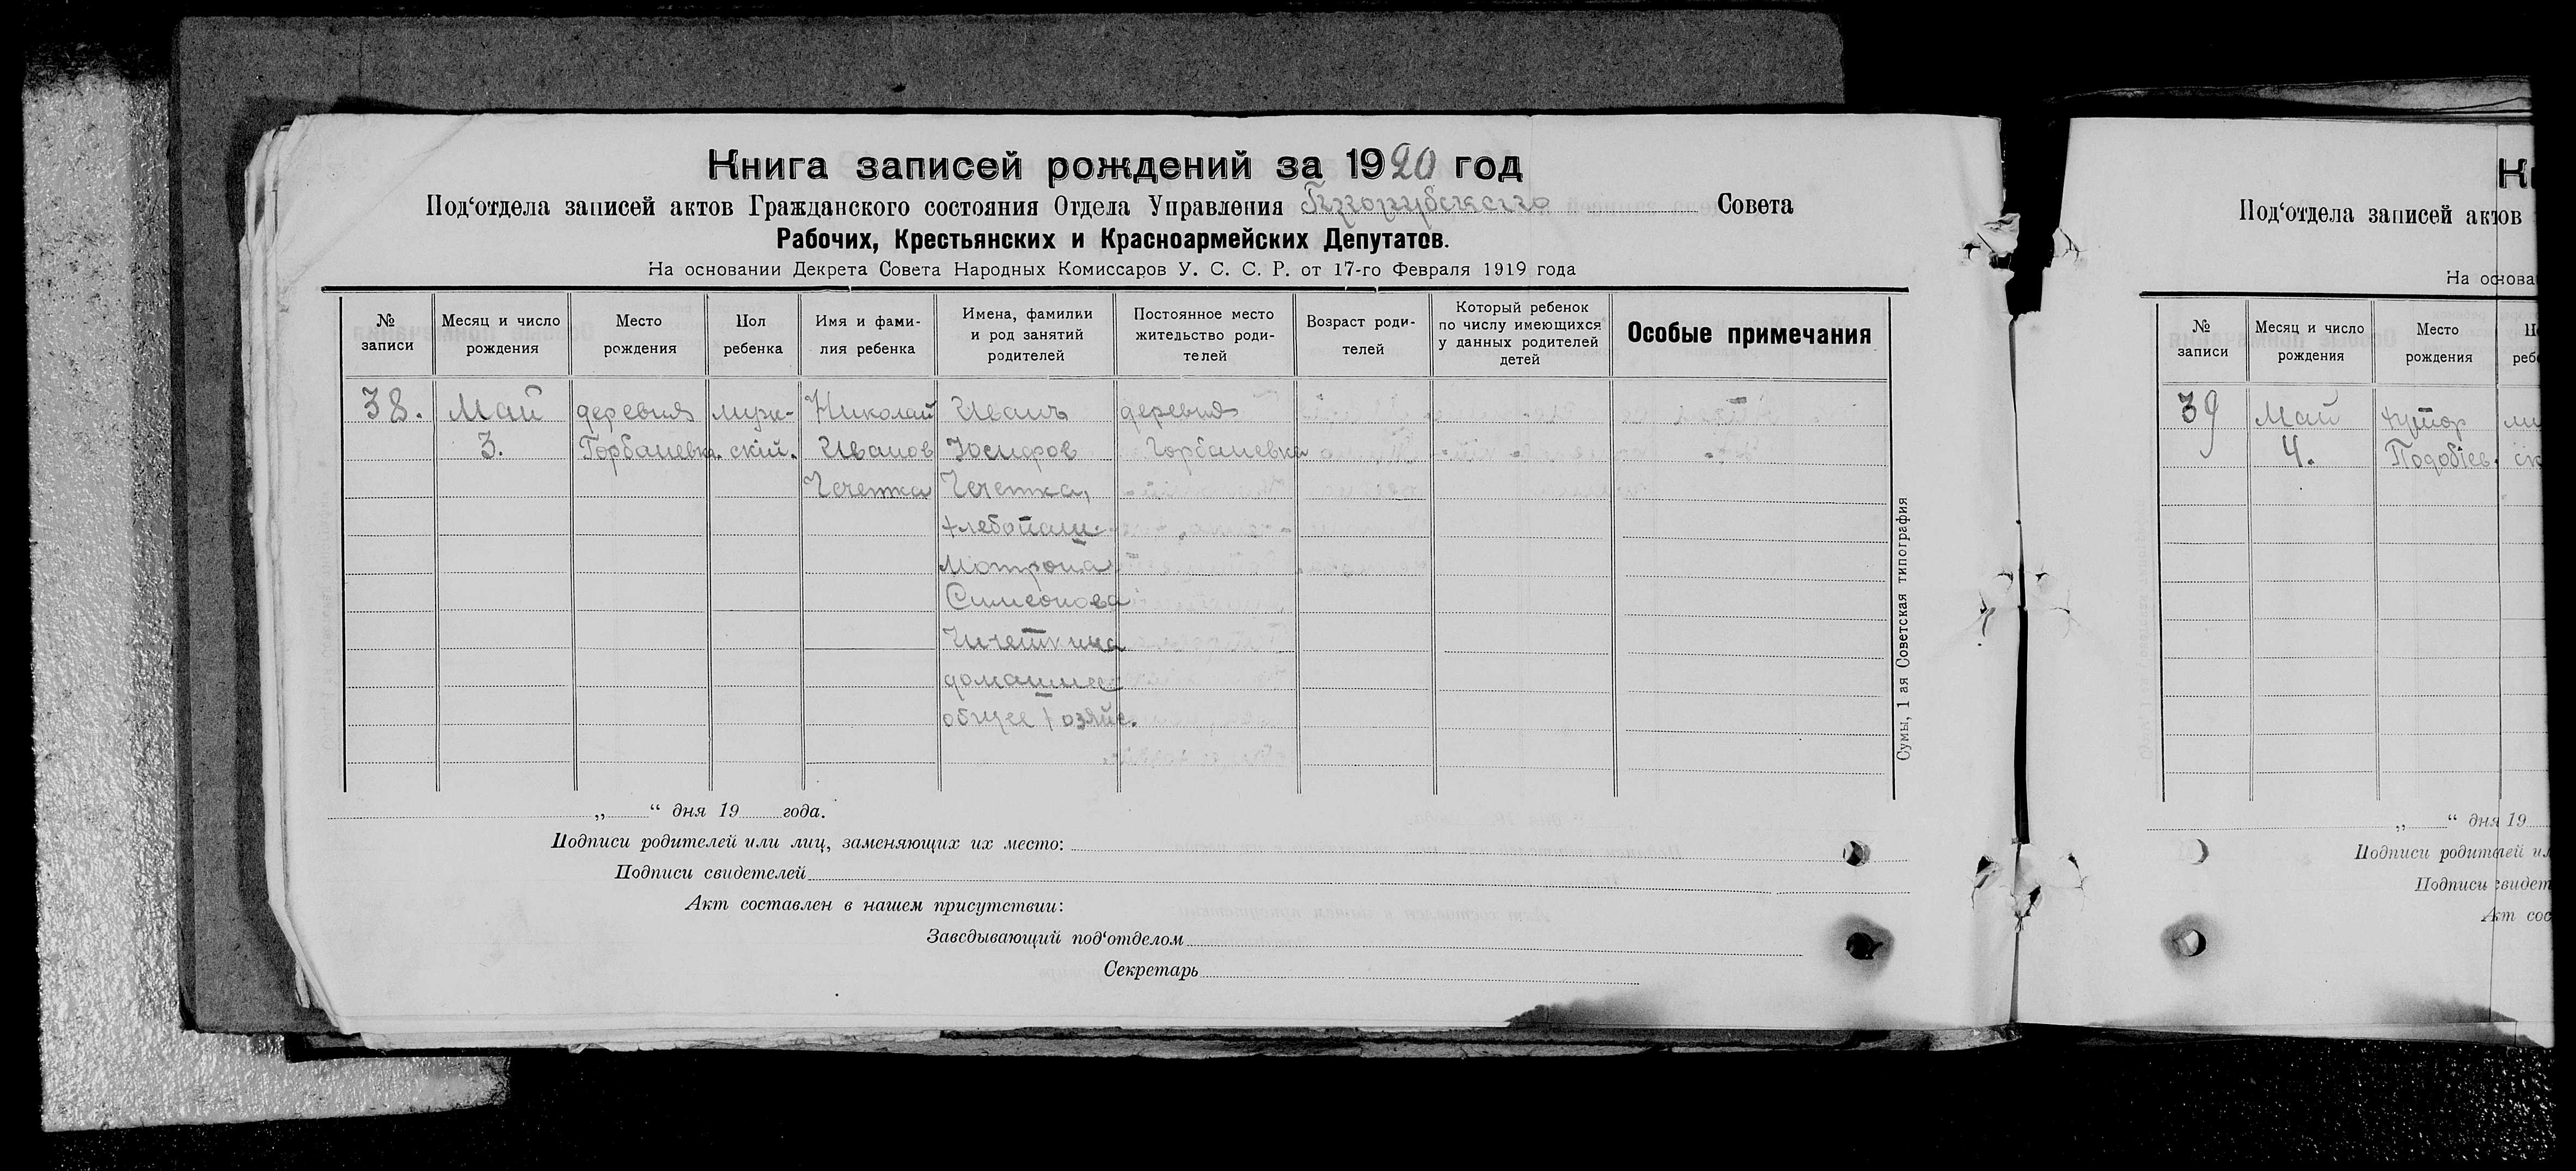 Книга записей рождений за 1920 год
Под‘отдела записей актов Гражданского состояния Отдела Управления Совета
Рабочих, Крестьянских и Красноармейских Депутатов.
На основании Декрета Совета Народных Комиссаров У. С. С. Р. от 17-го Февраля 1919 года
№ записи
Месяц и число рождения
Место рождения
Пол ребенка
Имя и фами-
лия ребенка
Имена, фамилии
и род занятий
родителей
Постоянное место
жительство роди-
телей
Возраст роди-
телей
Который ребенок
по числу имеющихся
у данных родителей
детей
Особые примечания
38. Май деревня муж- Николай Иванъ деревня
3. Горбаневка. ский. Иванов Иосифов Горбаневка
Чечетка Чечетка,
хлебопаш.
Мотрона
Симеонова
Чичеткина
домашнее
общее хозяйс.
Сумы, 1 ая Советская типография
„ “ дня 19 года.
Подписи родителей или лиц, заменяющих их место:
Подписи свидетелей
Акт составлен в нашем присутствии:
Заведывающий под‘отделом
Секретарь
Кн
Под‘отдела записей актов
На основа
№ записи
Месяц и число рождения
Место рождения
39 Май хутор му
4. Подобіев. ск
„ “ дня 19
Подписи родителей ил
Подписи свидет
Акт сос